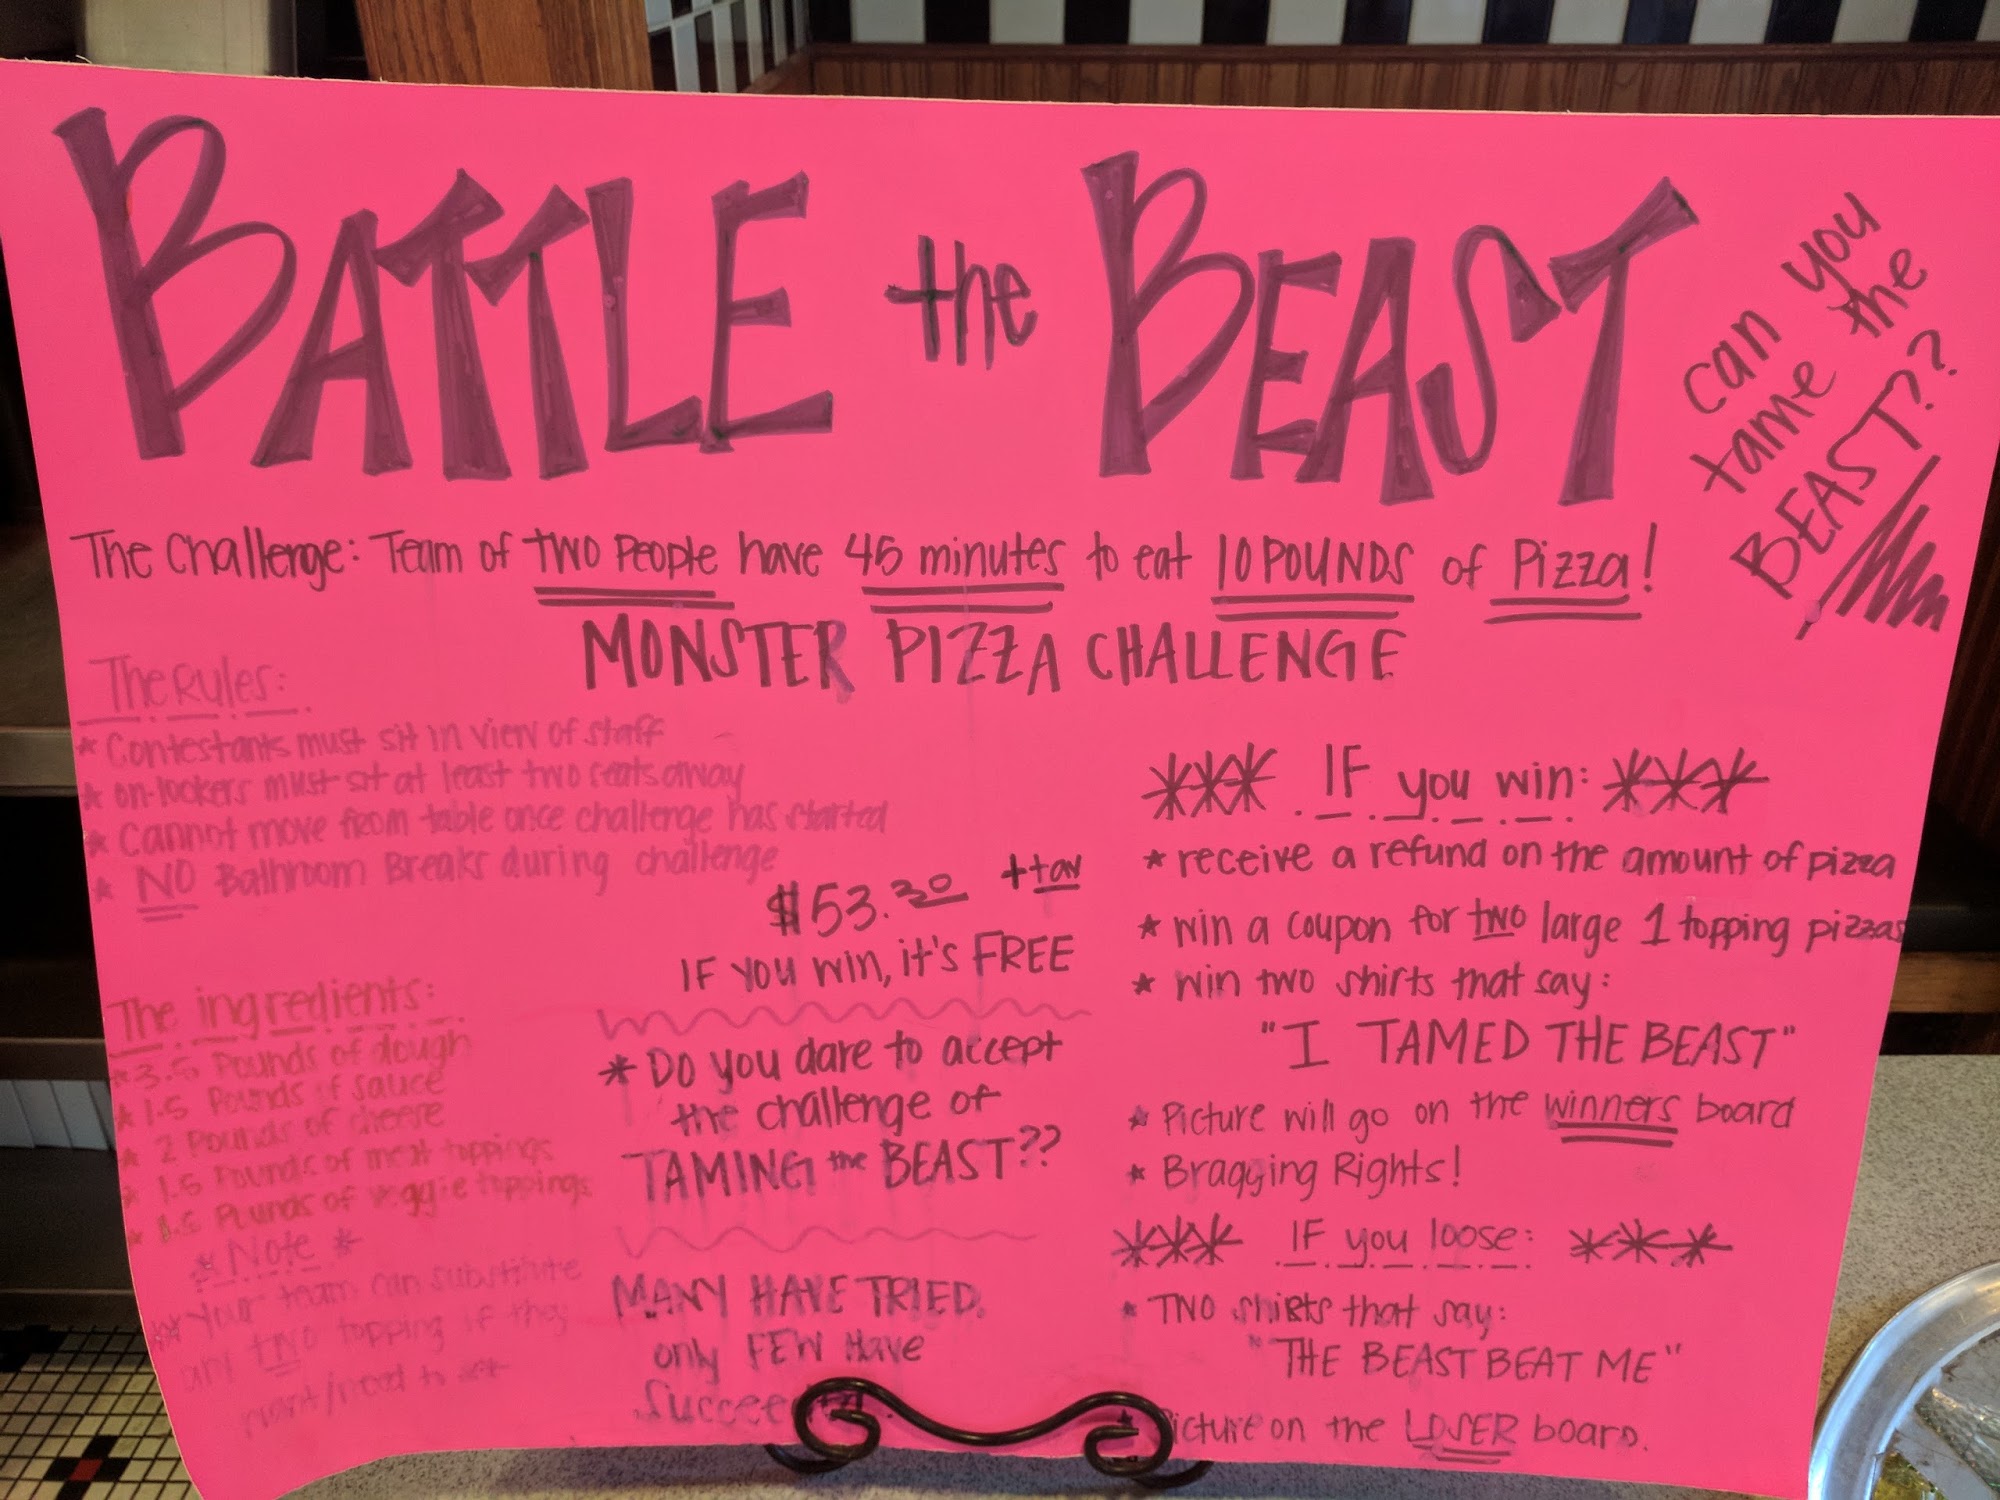 BATTLE the BEAST
can you
tame the
BEAST??
The Challenge: Team of TWO People have 45 minutes to eat 10 POUNDS of Pizza!
MONSTER PIZZA CHALLENGE
The Rules:
* Contestants must sit in view of staff
* on-lookers must sit at least two seats away
* Cannot move from table once challenge has started
* NO Bathroom Breaks during challenge
The ingredients:
* 3.5 Pounds of dough
* 1.5 Pounds of sauce
* 2 Pounds of cheese
* 1.5 Pounds of meat toppings
* 1.5 Pounds of veggie toppings
* Note *
** Your team can substitute
any TWO topping if they
want/need to **
$53.30 + tax
IF YOU WIN, it's FREE
* Do you dare to accept
the challenge of
TAMING the BEAST??
MANY HAVE TRIED.
only FEW Have
*** IF you win: ***
* receive a refund on the amount of pizza
* win a coupon for two large 1 topping pizzas
* win two shirts that say:
"I TAMED THE BEAST"
* Picture will go on the winners board
* Bragging Rights!
*** IF you loose: ***
* TWO shirts that say:
"THE BEAST BEAT ME"
* Picture on the LOSER board.